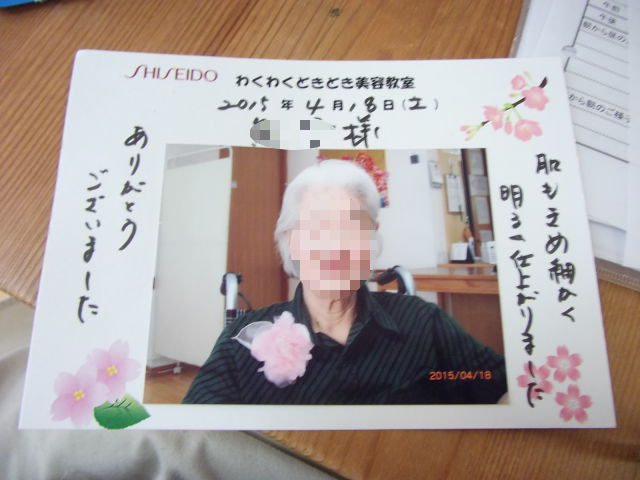 SHISEIDO わくわくどきどき美容教室
2015年4月18日(土)
様
肌もきめ細かく
明るく仕上がりました
ありがとう
ございました
2015/04/18
午前
午後